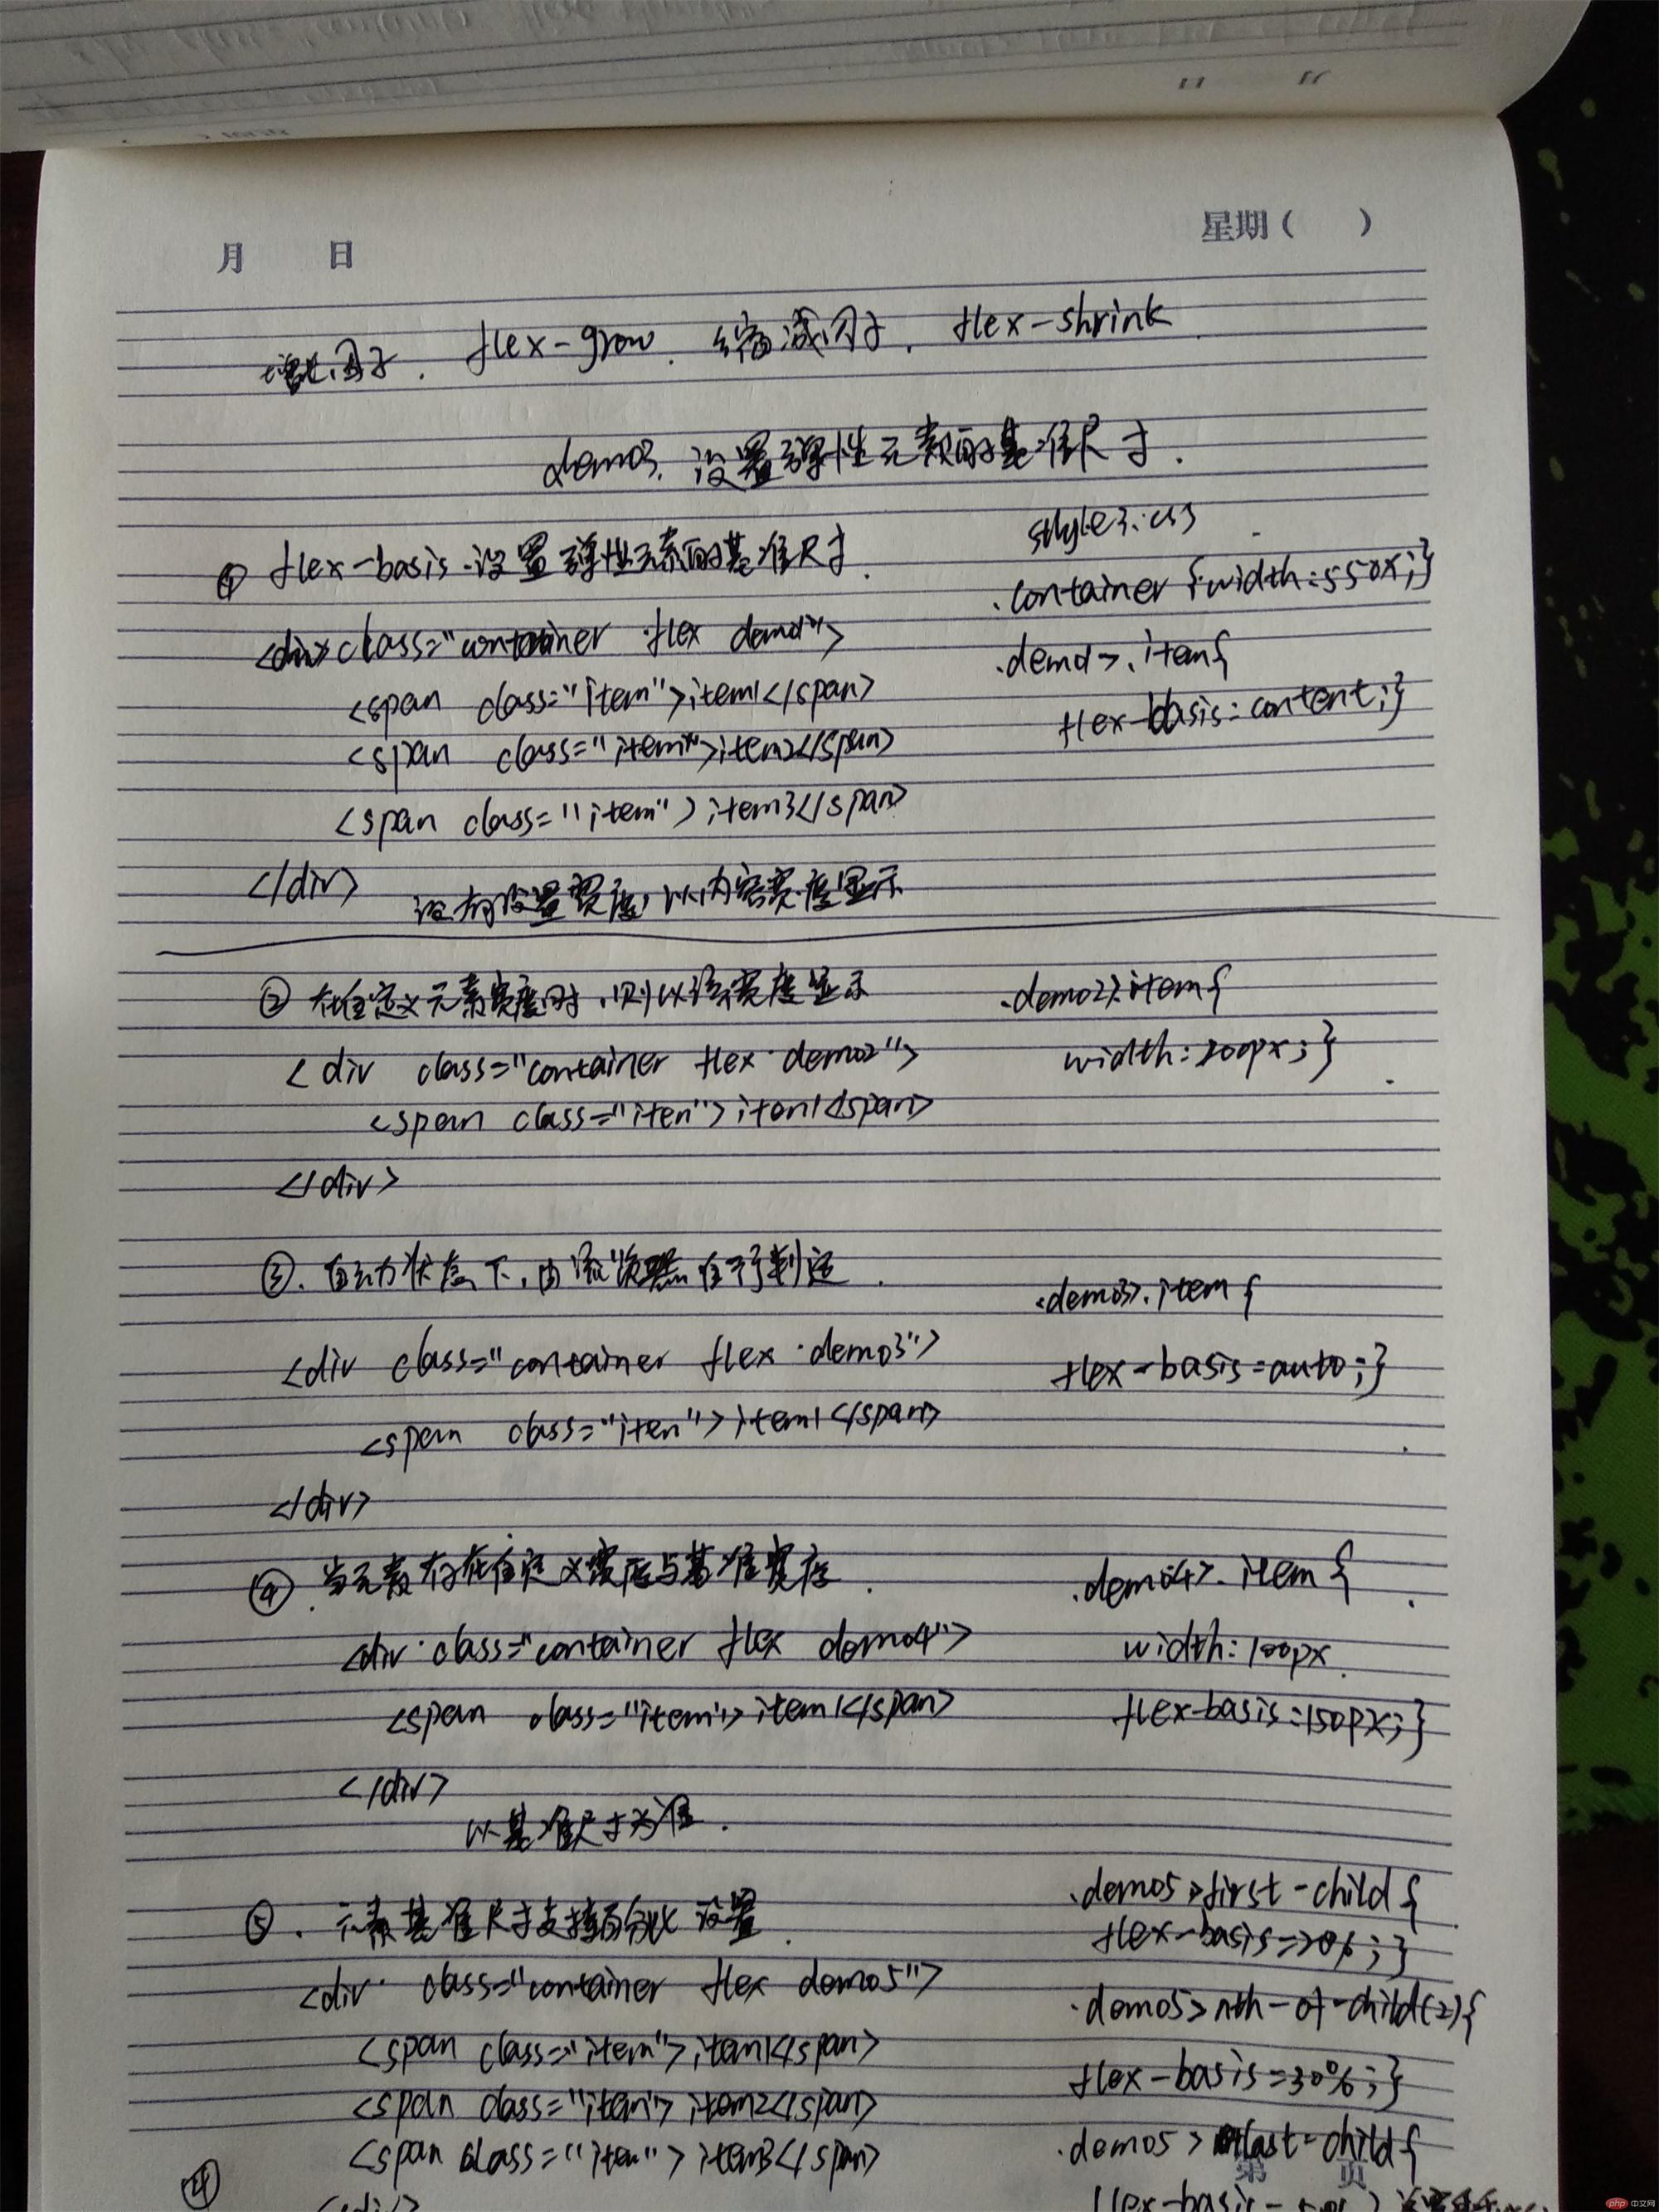 月 日 星期( )
增长因子. flex-grow. 缩减因子. flex-shrink
demo3. 设置弹性元素的基准尺寸.
① flex-basis.设置弹性元素的基准尺寸.
<div class="container flex demo1">
<span class="item">item1</span>
<span class="item">item2</span>
<span class="item">item3</span>
</div> 没有设置宽度,以内容宽度显示
style3.css
.container {width:550x;}
.demo1>.item{
flex-basis:content;}
② 在自定义元素宽度时,则以该宽度显示
<div class="container flex demo2">
<span class="item">item1</span>
</div>
.demo2>.item{
width:200px;}
③. 自动状态下,由 自行判定.
<div class="container flex demo3">
<span class="item">item1</span>
</div>
.demo3>.item{
flex-basis:auto;}
④. 当元素存在自定义宽度与基准宽度.
<div class="container flex demo4">
<span class="item">item1</span>
</div>
以基准尺寸为准.
.demo4>.item{
width:100px
flex-basis:150px;}
⑤. 元素基准尺寸支持百分比设置.
<div class="container flex demo5">
<span class="item">item1</span>
<span class="item">item2</span>
<span class="item">item3</span>
</div>
.demo5>first-child{
flex-basis=20%;}
.demo5>nth-of-child(2){
flex-basis=30%;}
.demo5>last-child{
flex-basis
④
第 页
php 中文网